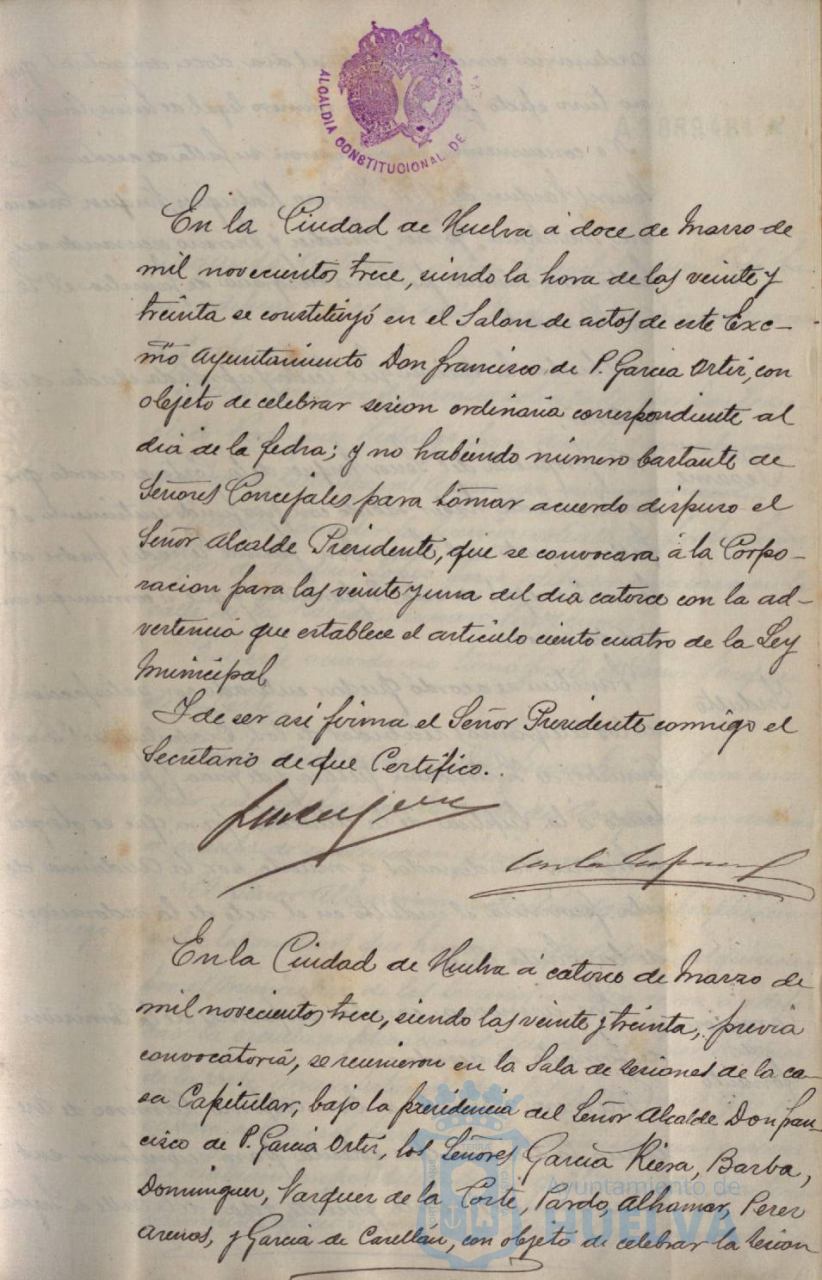 ALCALDIA CONSTITUCIONAL DE
En la Ciudad de Huelva á doce de Marzo de
mil novecientos trece, siendo la hora de las veinte y
treinta se constituyó en el Salon de actos de este Exc-
mo Ayuntamiento Don Francisco de P. Garcia Ortiz, con
objeto de celebrar sesion ordinaria correspondiente al
dia de la fecha; y no habiendo número bastante de
Señores Concejales para tomar acuerdo dispuso el
Señor Alcalde Presidente, que se convocara á la Corpo-
racion para las veinte y una del dia catorce con la ad-
vertencia que establece el articulo ciento cuatro de la Ley
Municipal
Y de ser asi firma el Señor Presidente conmigo el
Secretario de que Certifico.
En la Ciudad de Huelva á catorce de Marzo de
mil novecientos trece, siendo las veinte y treinta, previa
convocatoria, se reunieron en la Sala de sesiones de la ca-
sa Capitular, bajo la presidencia del Señor Alcalde Don Fran-
cisco de P. Garcia Ortiz, los Señores Garcia Riera, Barba,
Dominguez, Vazquez de la Corte, Pardo, Alhamar, Perez
Arenas, y Garcia de Casellán, con objeto de celebrar la sesion
Ayuntamiento de
HUELVA